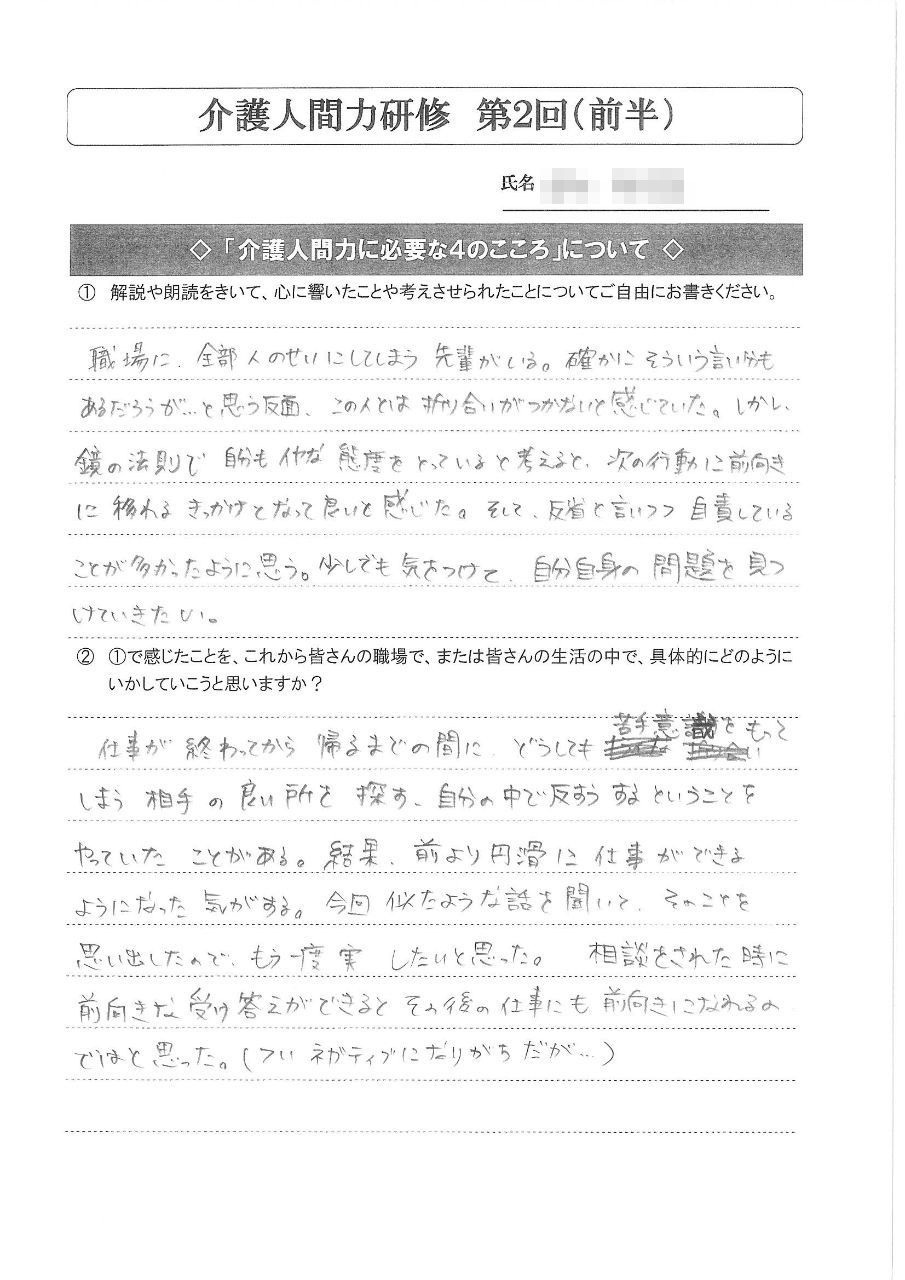 介護人間力研修 第2回(前半)
氏名
◇「介護人間力に必要な4のこころ」について◇
① 解説や朗読をきいて、心に響いたことや考えさせられたことについてご自由にお書きください。
職場に、全部人のせいにしてしまう先輩がいる。確かにそういう言い分も
あるだろうが…と思う反面、この人とは折り合いがつかないと感じていた。しかし、
鏡の法則で自分もイヤな態度をとっていると考えると、次の行動に前向き
に移れるきっかけとなって良いと感じた。そして、反省と言いつつ自責している
ことが多かったように思う。少しでも気をつけて、自分自身の問題を見つ
けていきたい。
② ①で感じたことを、これから皆さんの職場で、または皆さんの生活の中で、具体的にどのように
いかしていこうと思いますか？
仕事が終わってから帰るまでの間に、どうしても苦手意識をもって
しまう相手の良い所を探す、自分の中で反すうするということを
やっていたことがある。結果、前より円滑に仕事ができる
ようになった気がする。今回似たような話を聞いて、そのことを
思い出したので、もう一度実したいと思った。 相談をされた時に
前向きな受け答えができるとその後の仕事にも前向きになれるの
ではと思った。(ついネガティブになりがちだが…)